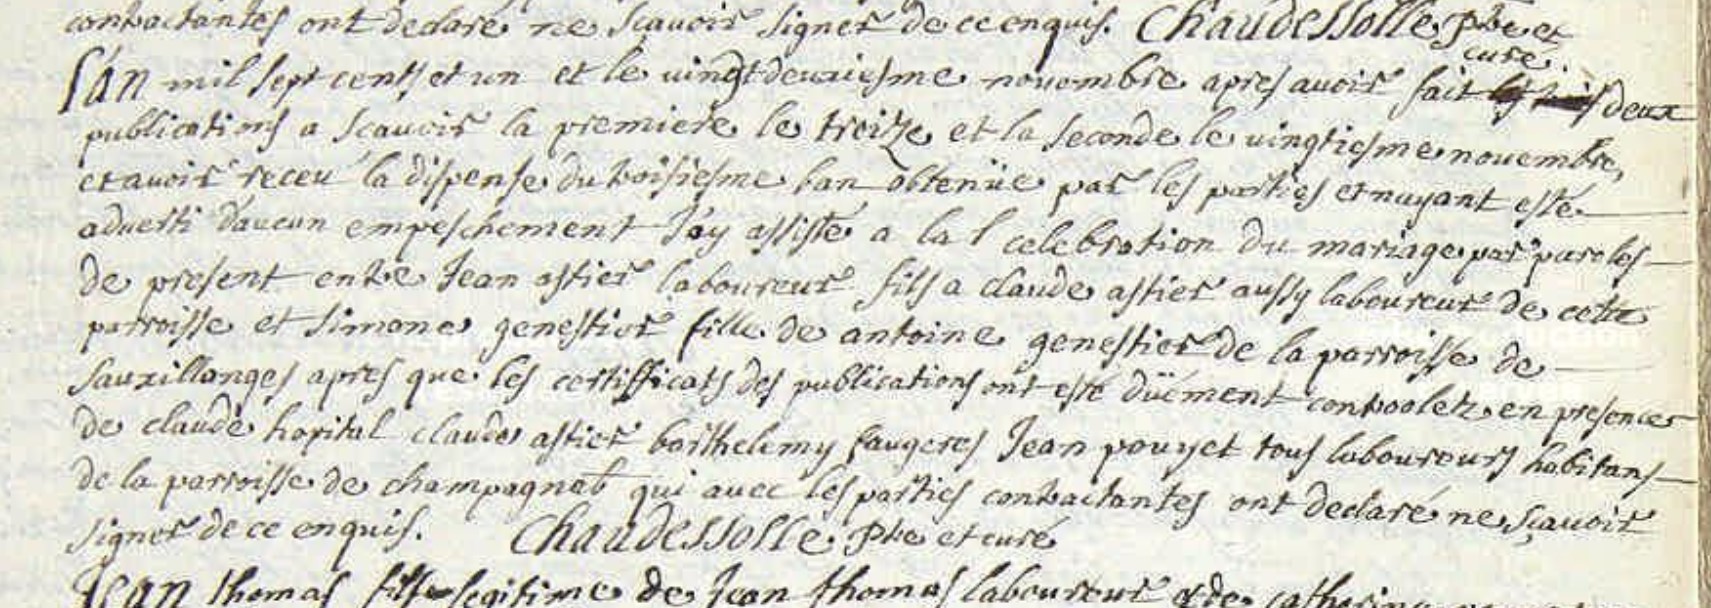 contractantes ont declaré ne scavoir signer de ce enquis. Chaudessolle ptre et
curé
L'an mil sept cents et un et le vingtdeuxiesme novembre apres avoir fait deux
publications a scavoir la premiere le treize et la seconde le vingtiesme novembre,
et avoir receu la dispense du troisiesme ban obtenüe par les parties et n'ayant esté
adverti d'aucun empeschement J'ay assisté a la celebration du mariage par paroles
de present entre Jean astier laboureur fils a claude astier aussy laboureur de cette
parroisse et simone genestier fille de antoine genestier de la parroisse de
Sauxillanges apres que les certifficats des publications ont esté düement controolelz en presences
de claude hopital claude astier barthelemy faugeres Jean pouyet tous laboureurs habitans
de la parroisse de champagnat qui avec les parties contractantes ont declaré ne sçavoir
signer de ce enquis. Chaudessolle ptre et curé
Jean thomas fils legitime de Jean thomas laboureur & de catherine